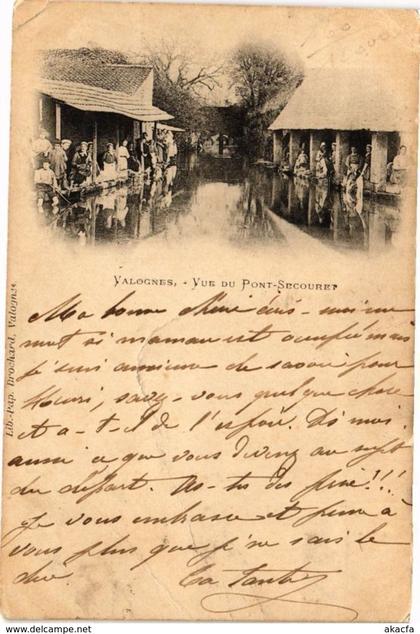 VALOGNES. - VUE DU PONT-SECOURET
Lib.-Pap. Brochard, Valognes.
Ma bonne chérie écris-moi un
mot si maman est occupée mais
je suis anxieuse de savoir pour
Henri, savez-vous quelque chose
et a-t-il de l'espoir. Dis moi
aussi ce que vous direz au sujet
du départ. As-tu des fine!!!
Je vous embrasse et pense à
vous plus que je ne sais le
dire. Ta Tante
www.akpool.co.uk
www.akacfa.com